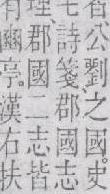 公劉之國史
毛詩箋郡國志
理郡國二志皆
有豳亭。漢右扶